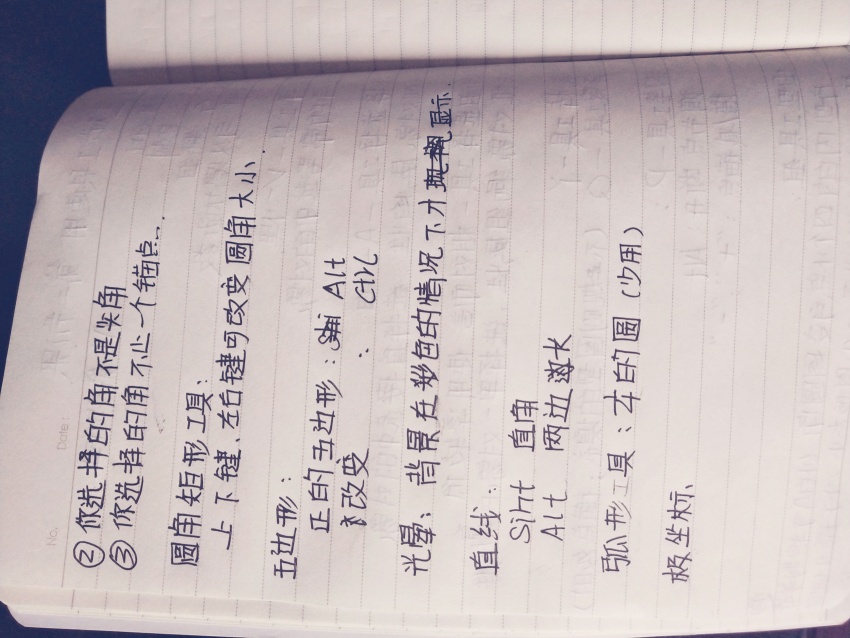 No.
Date:
②你选择的角不是尖角
③你选择的角不止一个锚点...
圆角矩形工具:
上下键、左右键可改变圆角大小.
五边形:
正的五边形: Alt
改变 : Ctrl
光晕: 背景在彩色的情况下才显示.
直线:
Sint 直角
Alt 两边延长
弧形工具: 左的圆(少用)
极坐标、